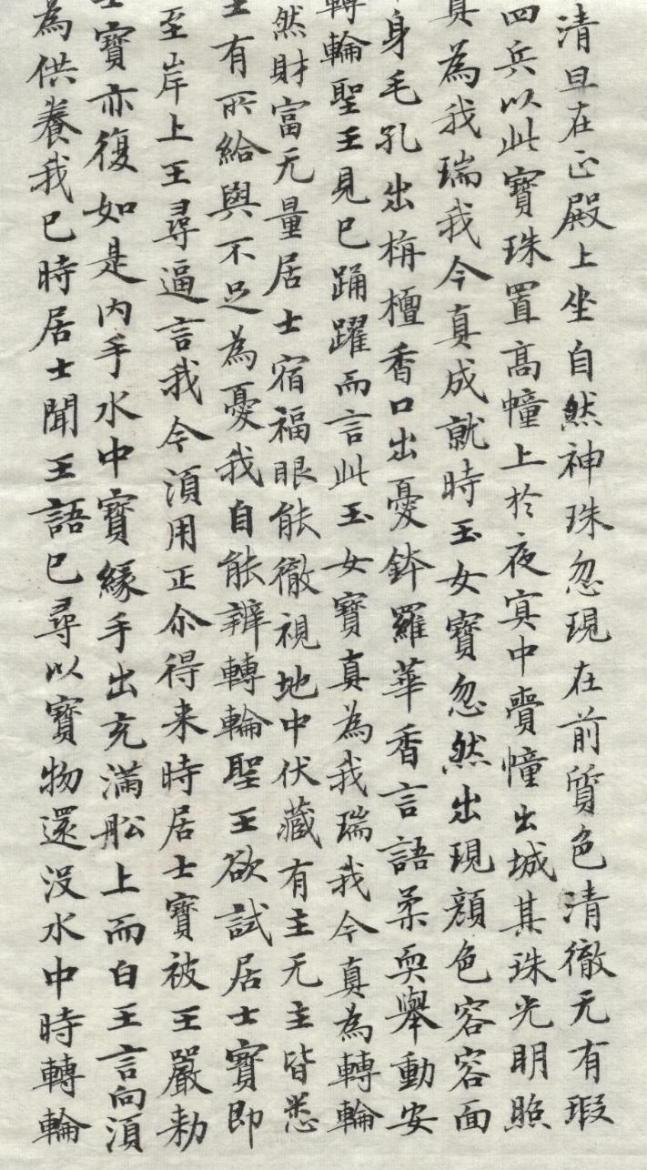 清旦在正殿上坐自然神珠忽現在前質色清徹无有瑕
四兵以此寶珠置高幢上於夜冥中賷幢出城其珠光明照
真為我瑞我今真成就時玉女寶忽然出現顔色容容面
身毛孔出栴檀香口出憂鉢羅華香言語柔耎舉動安
轉輪聖王見已踊躍而言此玉女寶真為我瑞我今真為轉輪
然財富无量居士宿福眼能徹視地中伏藏有主无主皆悉
主有所給與不足為憂我自能辦轉輪聖王欲試居士寶即
至岸上王尋逼言我今湏用正尒得来時居士寶被王嚴勑
士寶亦復如是内手水中寶緣手出充滿舩上而白王言向湏
為供養我已時居士聞王語已尋以寶物還没水中時轉輪